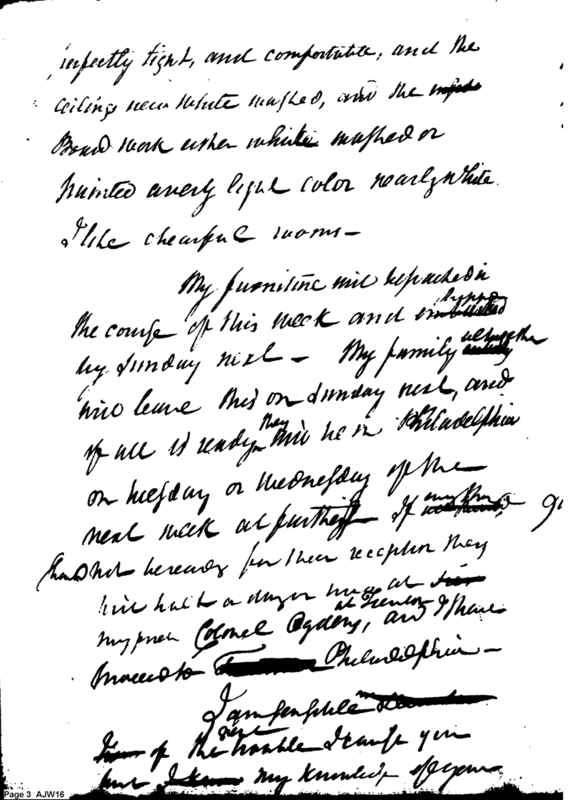 perfectly tight, and comfortable, and the
ceilings new white washed, and the
Board work either white washed or
painted a very light color nearly white.
I like chearful rooms –
My furniture will be packed in
the course of this week and
by Sunday next – My family altogether
will leave this on Sunday next, and
if all is ready they will be in Philadelphia
on tuesday or wednesday of the
next week at furthest If any thing
should not be ready for their reception they
will halt a day or two at
my friend Colonel Ogdens, at Trenton and I shall
proceed to Philadelphia –
I am sensible
of the trouble I cause you
but my knowledge of your
Page 3 AJW16